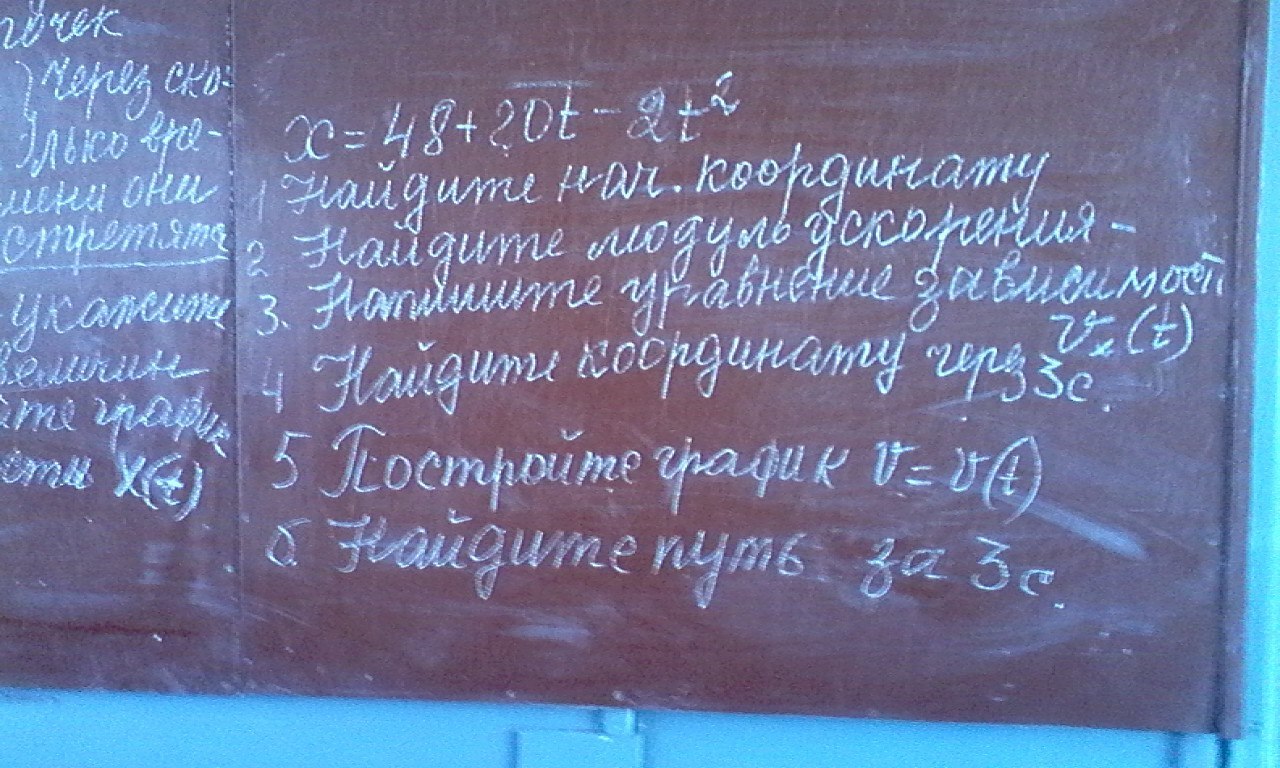 точек
через ско-
лько вре-
мени они
стретятся
укажите
величин
йте график
сти X(t)
x = 48 + 20t - 2t²
1 Найдите нач. координату
2 Найдите модуль ускорения -
3. Напишите уравнение зависимости
vₓ(t)
4 Найдите координату через 3с.
5 Постройте график v = v(t)
6. Найдите путь за 3с.